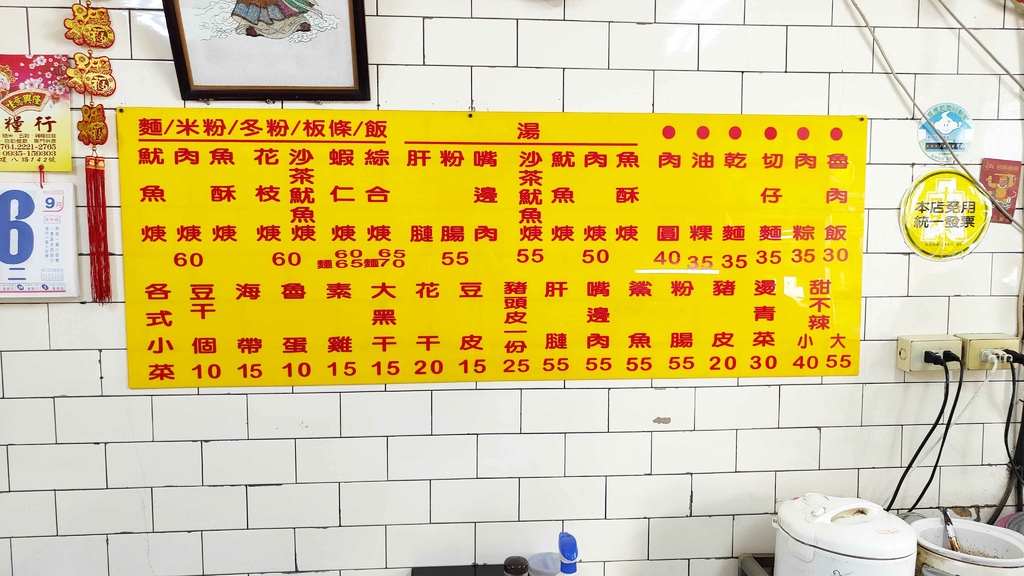 麵/米粉/冬粉/板條/飯
魷魚焿
肉焿
魚酥焿
60
花枝焿
60
沙茶魷魚焿
蝦仁焿
60
麵65
綜合焿
65
麵70
湯
肝腱
粉腸
55
嘴邊肉
沙茶魷魚焿
55
魷魚焿
肉焿
50
魚酥焿
肉圓
40
油粿
35
乾麵
35
切仔麵
35
肉粽
35
魯肉飯
30
各式小菜
豆干個
10
海帶
15
魯蛋
10
素雞
15
大黑干
15
花干
20
豆皮
15
豬頭皮一份
25
肝腱
55
嘴邊肉
55
鯊魚
55
粉腸
55
豬皮
20
燙青菜
30
甜不辣
小 大
40 55
糧行
764.2221-2765
0935-150303
9
6
二
本店免用
統一發票